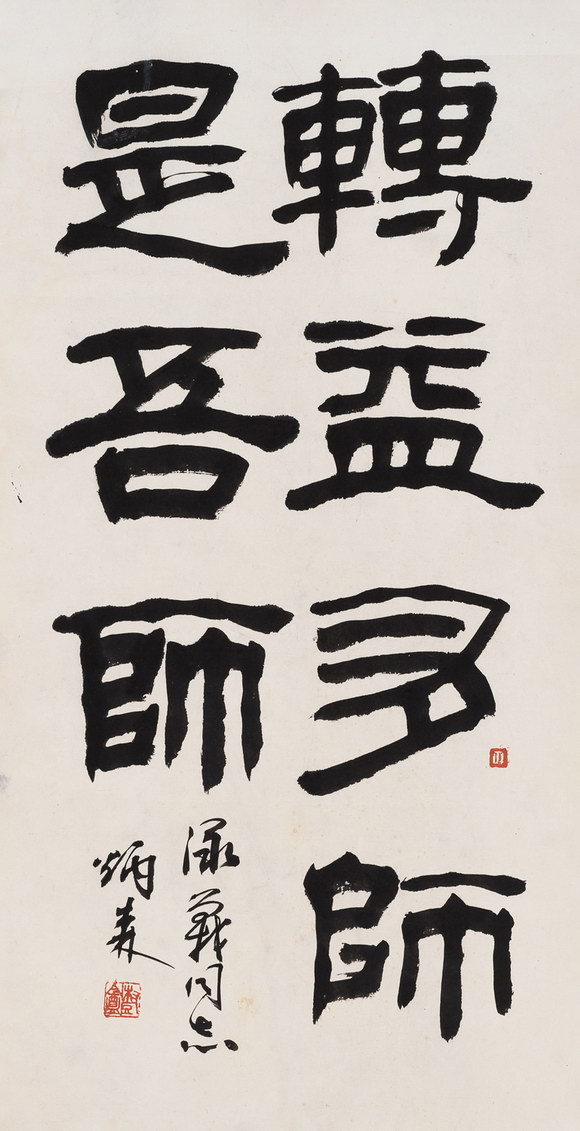 轉益多師
是吾師
同志
炳森